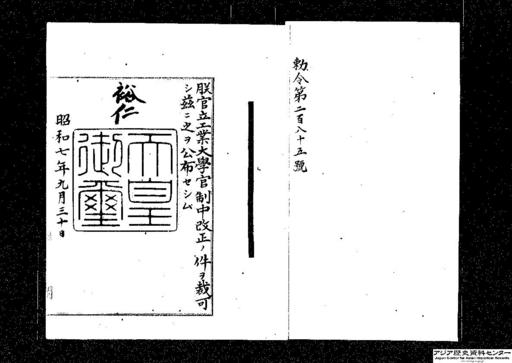 勅令第二百八十五號
朕官立工業大學官制中改正ノ件ヲ裁可
シ茲ニ之ヲ公布セシム
裕仁
天皇御璽
昭和七年九月三十日
アジア歴史資料センター
Japan Center for Asian Historical Records